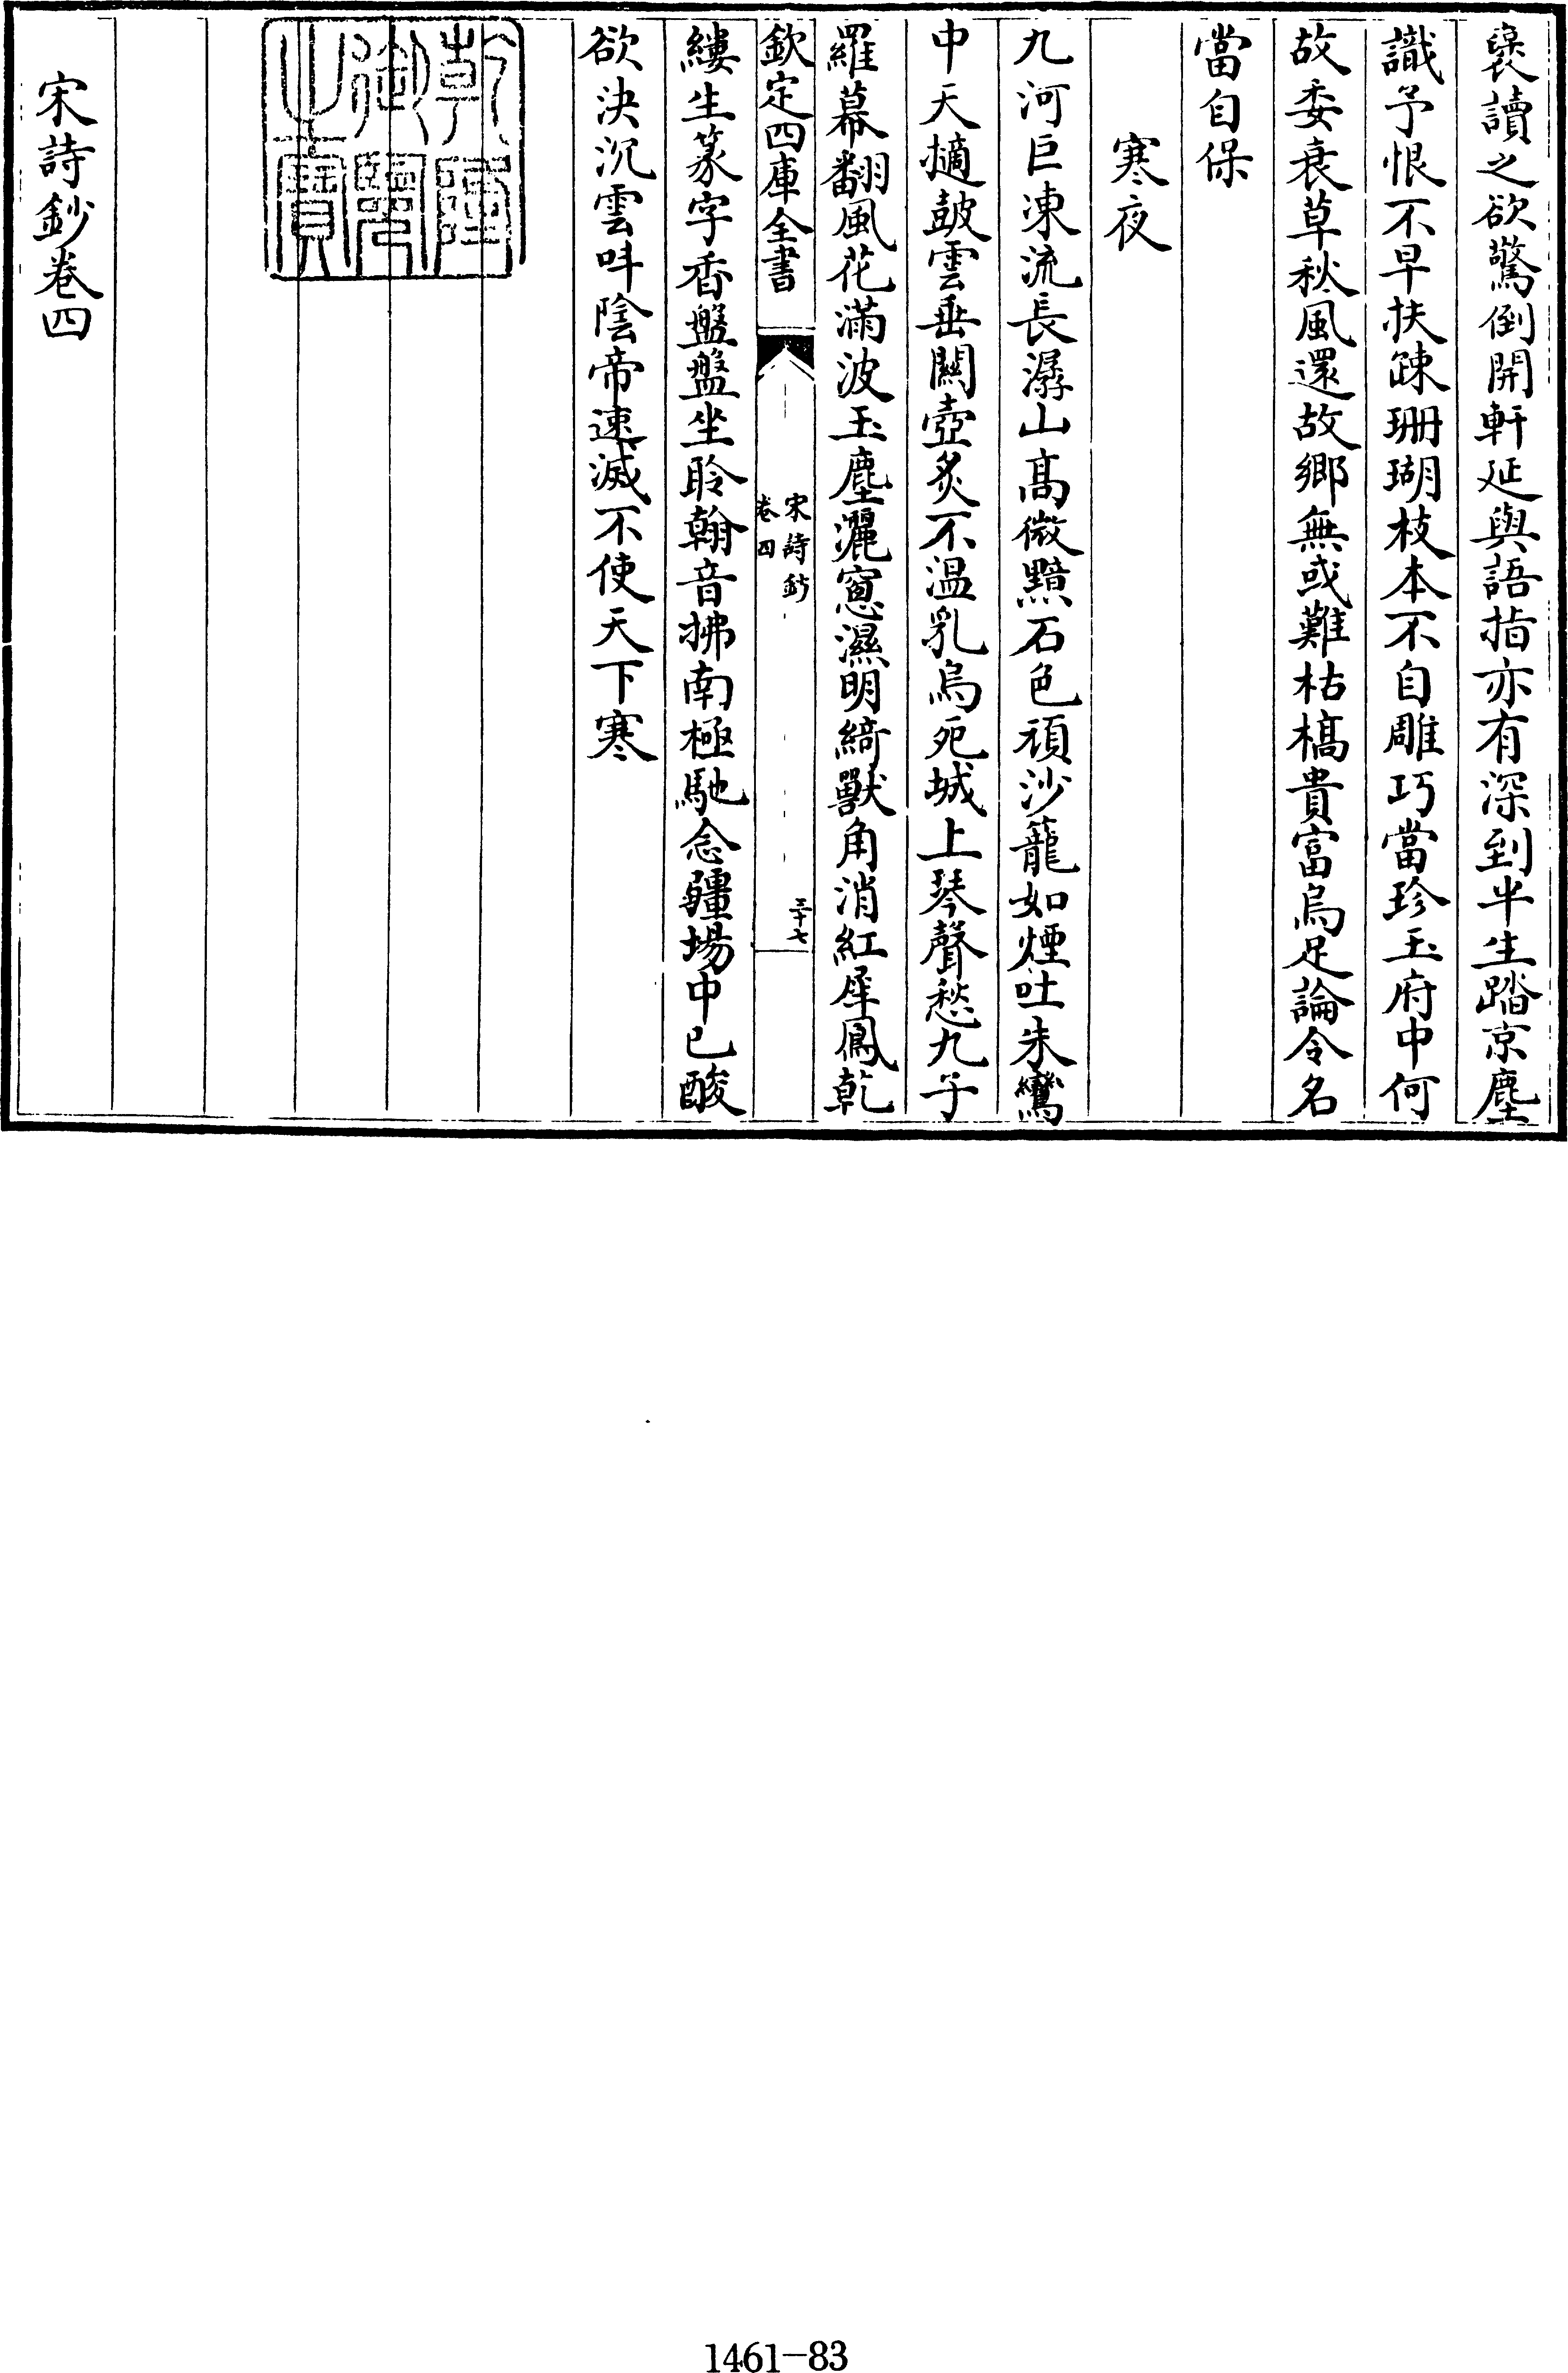 裒讀之欲驚倒開軒延與語指亦有深到半生踏京塵
識予恨不早扶疎珊瑚枝本不自雕巧當珍玉府中何
故委衰草秋風還故鄉無或難枯槁貴富烏足論令名
當自保
寒夜
九河巨凍流長潺山高微黯石色頑沙籠如煙吐朱鸞
中天擿皷雲垂闗壺炙不温乳烏死城上琴聲愁九子
羅幕翻風花滿波玉塵灑窻濕明綺獸角消紅犀鳳乾
欽定四庫全書
宋詩鈔
卷四
三十七
縷生篆字香盤盤坐聆翰音拂南極馳念疆場中已酸
欲決沉雲呌陰帝速滅不使天下寒
乾隆御覽之寶
宋詩鈔卷四
1461-83